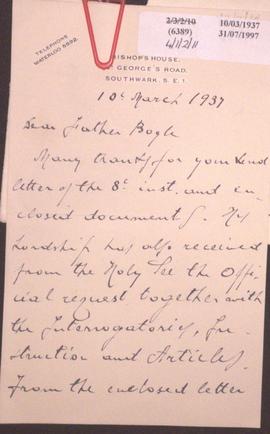 2/3/2/10
(6389)
4/1/2/11
10/03/1937
31/07/1997
TELEPHONE
WATERLOO 5592.
BISHOP'S HOUSE,
GEORGE'S ROAD,
SOUTHWARK, S.E.1.
10th March 1937
Dear Father Bogle
Many thanks for your kind
letter of the 8th inst. and en-
closed documents. His
Lordship has also received
from the Holy See the Offi-
cial request together with
the Interrogatories, In-
struction and Articles.
From the enclosed letter